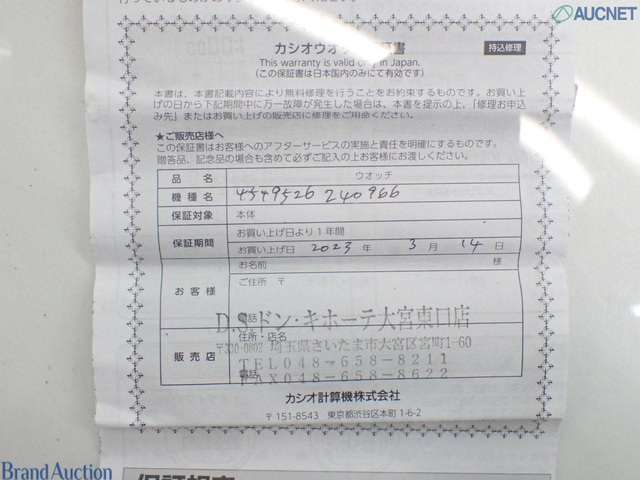 AUCNET
カシオウオッチ保証書
持込修理
This warranty is valid only in Japan.
(この保証書は日本国内のみにて有効です)
本書は、本書記載内容により無料修理を行うことをお約束するものです。お買い上
げの日から下記期間中に万一故障が発生した場合は、本書を提示の上、「修理お申込
み先」またはお買い上げの販売店に修理をご用命ください。
★ご販売店様へ
この保証書はお客様へのアフターサービスの実施と責任を明確にするものです。
贈答品、記念品の場合も含めて必ずご記入の上お客様にお渡しください。
品名 ウオッチ
機種名 4549526 240966
保証対象 本体
保証期間 お買い上げ日より1年間
お買い上げ日 2023 年 3 月 14 日
お客様 お名前 様
ご住所 〒
電話
D.S.ドン・キホーテ大宮東口店
販売店 住所・店名
〒330-0802 埼玉県さいたま市大宮区宮町1-60
TEL048-658-8211
電話 FAX048-658-8622
カシオ計算機株式会社
〒151-8543 東京都渋谷区本町1-6-2
Brand Auction